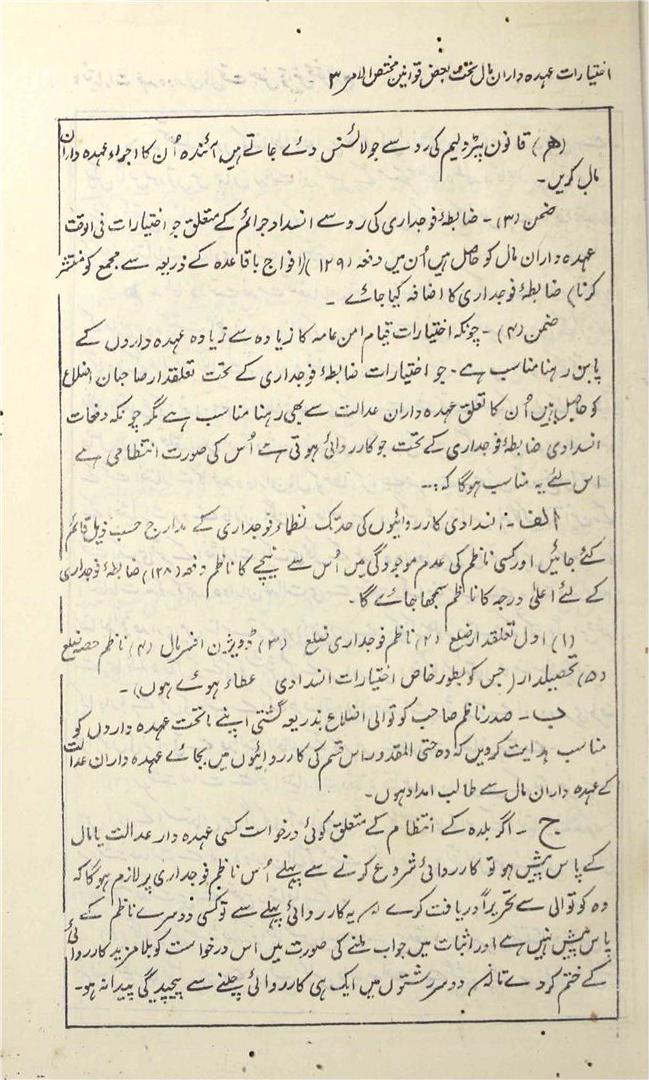 اختیارات عہدہ داران مال تحت بعض قوانین مختص الامر ۳
(ھ) قانون پٹرولیم کی رو سے جو لائسنس دئے جاتے ہیں آئندہ اُن کا اجراء عہدہ داران
مال کریں۔
ضمن (۳)۔ ضابطۂ فوجداری کی رو سے انسداد جرائم کے متعلق جو اختیارات فی الوقت
عہدہ داران مال کو حاصل ہیں اُن میں دفعہ (۱۲۹) (افواج باقاعدہ کے ذریعہ سے مجمع کو منتشر
کرنا) ضابطۂ فوجداری کا اضافہ کیا جائے ۔
ضمن (۴)۔ چونکہ اختیارات قیام امن عامہ کا زیادہ سے زیادہ عہدہ داروں کے
پاس رہنا مناسب ہے۔ جو اختیارات ضابطۂ فوجداری کے تحت تعلقدار صاحبان اضلاع
کو حاصل ہیں اُن کا تعلق عہدہ داران عدالت سے بھی رہنا مناسب ہے مگر چونکہ دفعات
انسدادی ضابطۂ فوجداری کے تحت جو کارروائی ہوتی ہے اُس کی صورت انتظامی ہے
اس لئے یہ مناسب ہوگا کہ:۔
الف۔ انسدادی کارروائیوں کی حد تک نظماء فوجداری کے مدارج حسب ذیل قائم
کئے جائیں اور کسی ناظم کی عدم موجودگی میں اُس سے نیچے کا ناظم دفعہ (۱۲۸) ضابطۂ فوجداری
کے لئے اعلیٰ درجہ کا ناظم سمجھا جائے گا۔
(۱) اول تعلقدار ضلع (۲) ناظم فوجداری ضلع (۳) ڈویژن افسر مال (۴) ناظم حصہ ضلع
(۵) تحصیلدار (جس کو بطور خاص اختیارات انسدادی عطاء ہوئے ہوں)۔
ب۔ صدر ناظم صاحب کوتوالی اضلاع بذریعہ گشتی اپنے ماتحت عہدہ داروں کو
مناسب ہدایت کردیں کہ وہ حتی المقدور اس قسم کی کارروائیوں میں بجائے عہدہ داران عدالت
کے عہدہ داران مال سے طالب امداد ہوں۔
ج ۔ اگر بلدہ کے انتظام کے متعلق کوئی درخواست کسی عہدہ دار عدالت یا مال
کے پاس پیش ہو تو کارروائی شروع کرنے سے پہلے اُس ناظم فوجداری پر لازم ہوگا کہ
وہ کوتوالی سے تحریراً دریافت کرے یہ کارروائی پہلے سے تو کسی دوسرے ناظم کے
پاس پیش نہیں ہے اور اثبات میں جواب ملنے کی صورت میں اس درخواست کو بلا مزید کارروائی
کے ختم کردے تا دو سررشتوں میں ایک ہی کارروائی چلنے سے پیچیدگی پیدا نہ ہو۔